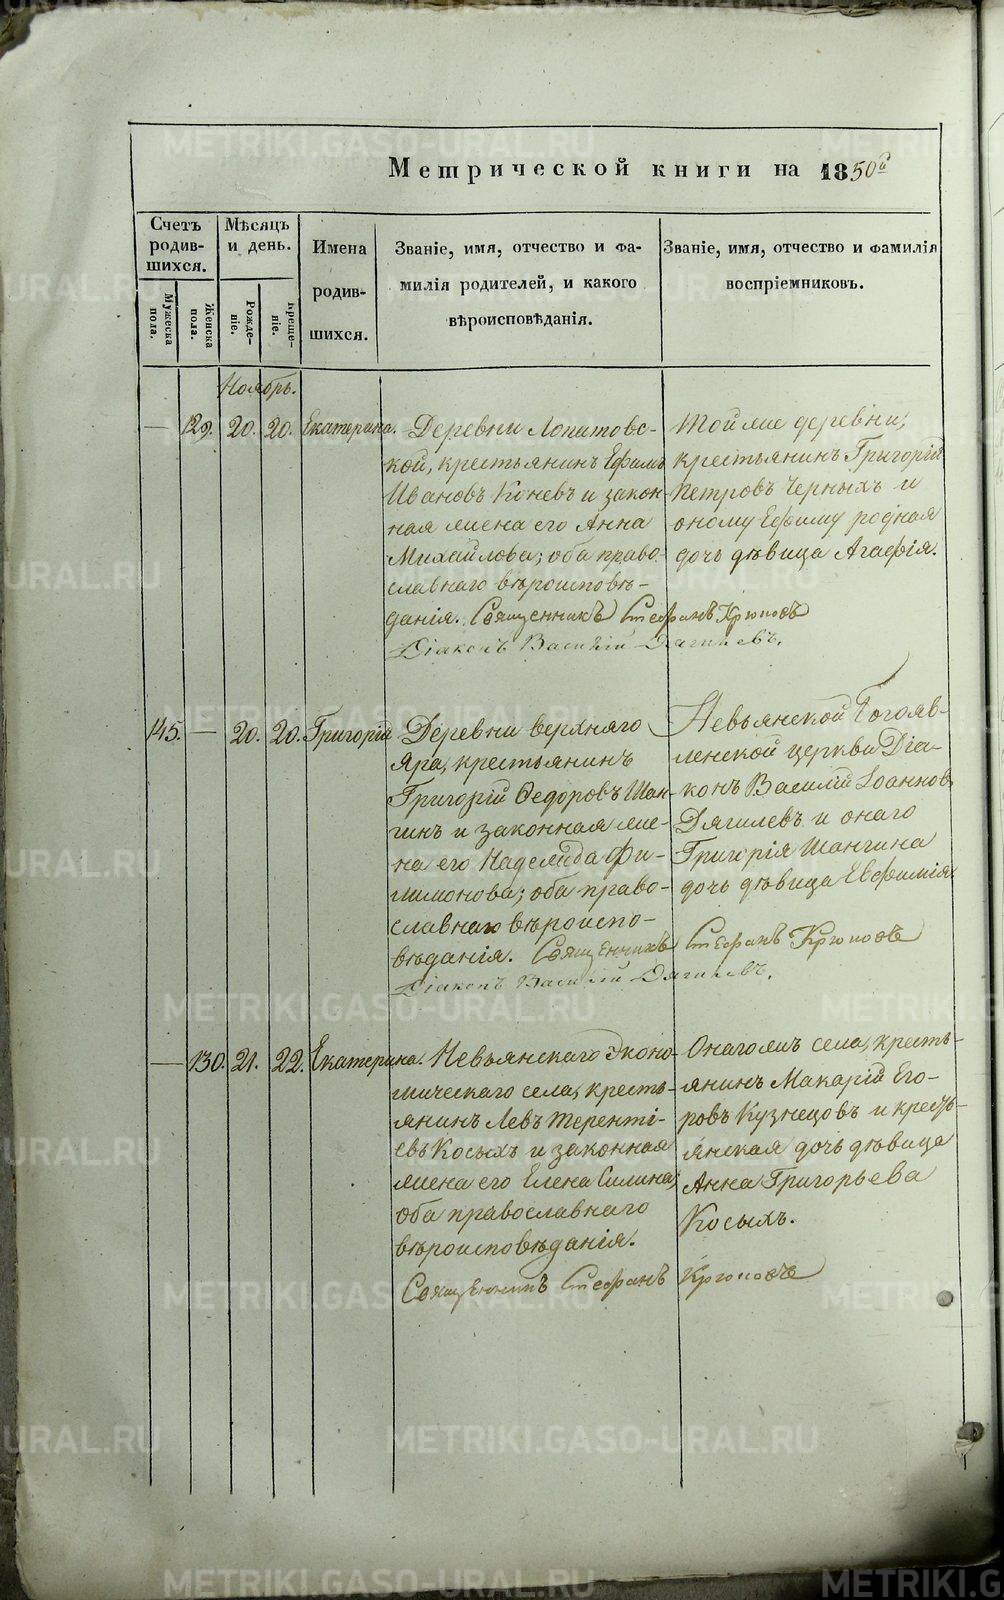 Метрической книги на 1850й
Счетъ родив-шихся.
Мѣсяцъ и день.
Имена родив-шихся.
Званіе, имя, отчество и фа-
милія родителей, и какого
вѣроисповѣданія.
Званіе, имя, отчество и фамилія
воспріемниковъ.
Мужеска пола.
Женска пола.
Рожде-ніе.
Креще-ніе.
Ноябрь.
— 129. 20. 20. Екатерина.
Деревни Лопатовс-
кой, крестьянинъ Ефимъ
Ивановъ Коневъ и закон-
ная жена его Анна
Михайлова; оба право-
славнаго вѣроисповѣ-
данія. Священникъ Стефанъ Крюковъ
Діаконъ Василій Дягилевъ.
Той же деревни,
крестьянинъ Григорій
Петровъ Черныхъ и
оному Ефиму родная
дочь дѣвица Агафія.
145. — 20. 20. Григорій
Деревни верхняго
Яра, крестьянинъ
Григорій Ѳедоровъ Шан-
гинъ и законная же-
на его Надежда Фи-
лимонова; оба право-
славнаго вѣроиспо-
вѣданія. Священникъ Стефанъ Крюковъ
Діаконъ Василій Дягилевъ.
Невьянской Богояв-
ленской церкви Діа-
конъ Василій Іоаннов
Дягилевъ и онаго
Григорія Шангина
дочь дѣвица Евфимія
— 130. 21. 22. Екатерина.
Невьянскаго Эконо-
мическаго села, кресть-
янинъ Левъ Теренті-
евъ Косыхъ и законная
жена его Елена Силина;
оба православнаго
вѣроисповѣданія.
Священникъ Стефанъ Крюковъ
Онагожъ села, кресть-
янинъ Макарій Его-
ровъ Кузнецовъ и кресть-
янская дочь дѣвица
Анна Григорьева
Косыхъ.
METRIKI.GASO-URAL.RU